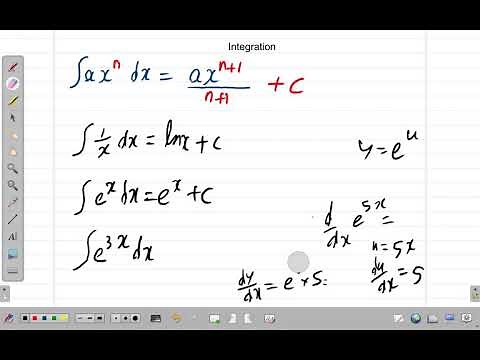 Integration
∫ax^n dx = ax^(n+1)/(n+1) + C
∫1/x dx = lnx + C
y = e^u
∫e^x dx = e^x + C
d/dx e^(5x) =
u = 5x
∫e^(3x) dx
dy/dx = e × 5 =
du/dx = 5